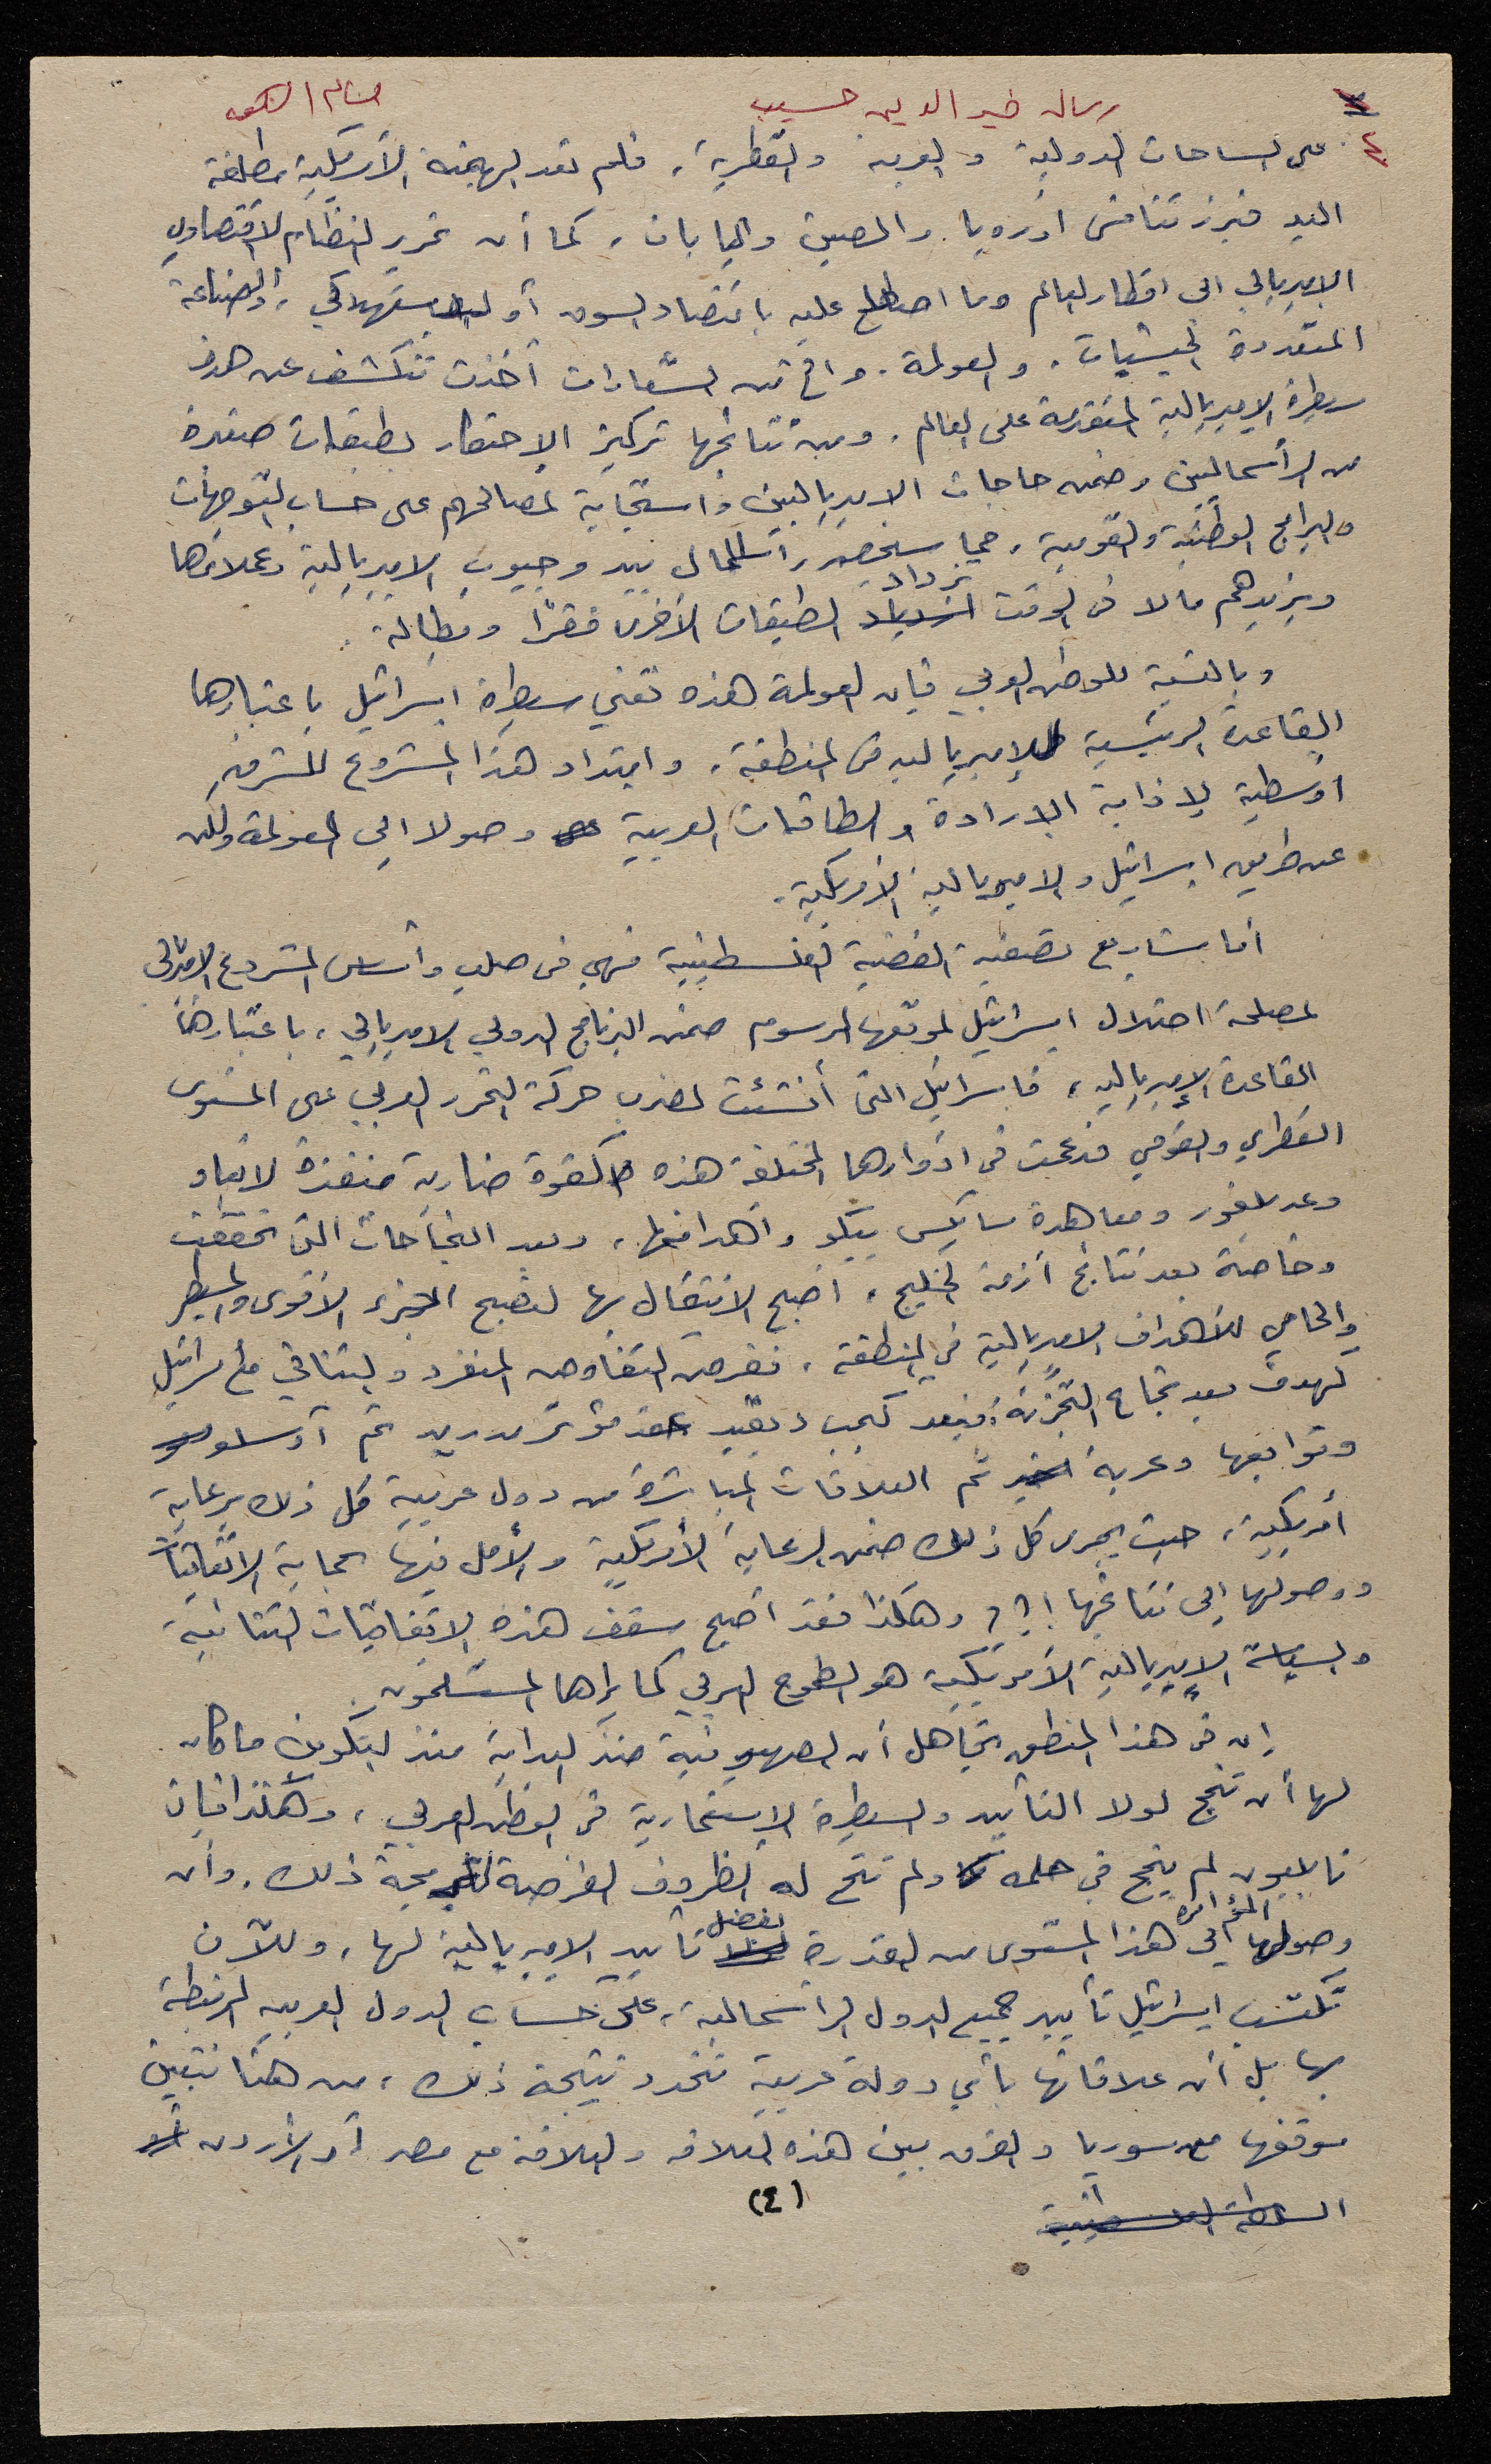 رسالة خير الدين حسيب
٤
على الساحات الدولية والعربية والقطرية، فلم تعد الهيمنة الأمريكية مطلقة
اليد فبرز تنافس اوروبا والصين واليابان، كما أن تحرر النظام الاقتصادي
الامبريالي الى اقطار العالم وما اصطلح عليه باقتصاد السوق أو الاستهلاكي، والصناعة
المتعددة الجنسيات، والعولمة. من الشعارات أخذت تتكشف عن هدف
سيطرة الامبريالية المتقدمة على العالم، ومن نتائجها تركيز الاحتكار بطبقات صغيرة
من الرأسماليين وضمن حاجات الامبرياليين واستجابة لمصالحهم على حساب التوجهات
والبرامج الوطنية والقومية، سينحصر رأسمال بيد وجيوب الامبريالية وعملائها
ويزيدهم مالا في الوقت تزداد الطبقات الأخرى فقرا وبطالة.
وبالنسبة للوطن العربي فإن العولمة هذه تعني سيطرة اسرائيل باعتبارها
القاعدة الرئيسية للإمبريالية في المنطقة، وامتداد هذا المشروع للشرق
اوسطية لإذابة الارادة والطاقات العربية وصولا الى العولمة ولكن
عن طريق اسرائيل والامبريالية الأمريكية.
أما مشاريع تصفية القضية الفلسطينية فهي في صلب وأساس المشروع الامبريالي
لمصلحة احتلال اسرائيل لموقعها المرسوم ضمن البرنامج الدولي الامبريالي، باعتبارها
القاعدة الإمبريالية، فاسرائيل التي أنشئت لضرب حركة التحرر العربي على المستوى
القطري والقومي قد نجحت في ادوارها المختلفة هذه كقوة ضاربة منفذة لابعاد
وعد بلفور ومعاهدة سايكس بيكو وأهدافها، وبعد النجاحات التي تحققت
وخاصة بعد نتائج أزمة الخليج، أصبح الانتقال بها لتصبح الجزء الأقوى والمسيطر
والحامي للأهداف الامبريالية في المنطقة، نفرض التفاوض المنفرد والثنائي مع اسرائيل
كهدف بعد نجاح التجزئة، فبعد كمب ديفيد عقد مؤتمر مدريد ثم أوسلو
وتوابعها وعربة ثم العلاقات المباشرة من دول عربية كل ذلك برعاية
أمريكية، حيث يجري كل ذلك ضمن الرعاية الأمريكية والأمل فيها لحماية الاتفاقيات
ووصولها إلى نتائجها !؟؟ وهكذا فقد أصبح سقف هذه الاتفاقيات الثنائية
والسياسة الإمبريالية الأمريكية هو الطموح العربي كما يراها المستسلمون.
إن في هذا المنطق تجاهل أن الصهيونية منذ البداية منذ التكوين ما كان
لها أن تنجح لولا التأييد والسيطرة الاستعمارية في الوطن العربي، وهكذا فإن
نابليون لم ينجح في حلمه ولم تتح له الظروف الفرصة لبرمجة ذلك. وأن
وصولها المؤامرة الى هذا المستوى من القدرة بفضل تأييد الامبريالية لها، وللآن
تكتسب اسرائيل تأييد جميع الدول الرأسمالية، على حساب الدول العربية المرتبطة
بها بل أن علاقاتها بأي دولة عربية تتحدد نتيجة ذلك، من هنا نتبين
موقفها مع سوريا والفرق بين هذه العلاقة والعلاقة مع مصر أو الأردن أو
السلطة الفلسطينية
(٤)